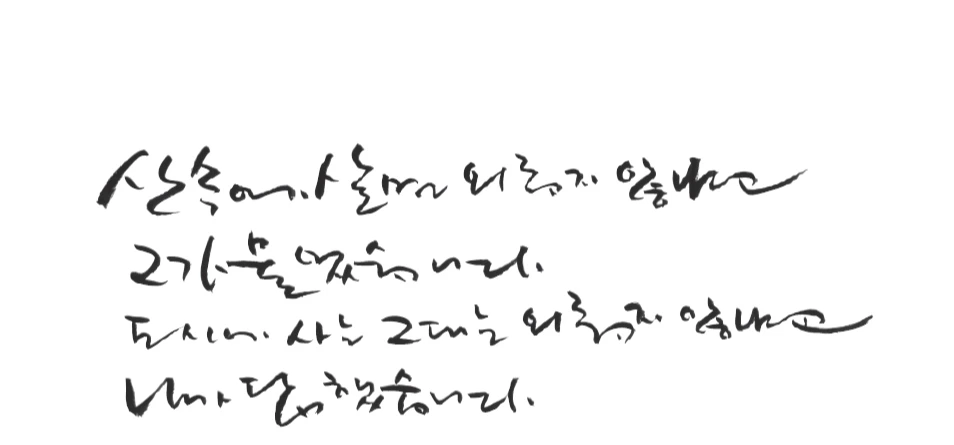 산속에 살면 외롭지 않냐고
그가 물었습니다.
도시에 사는 그대는 외롭지 않냐고
내가 답했습니다.